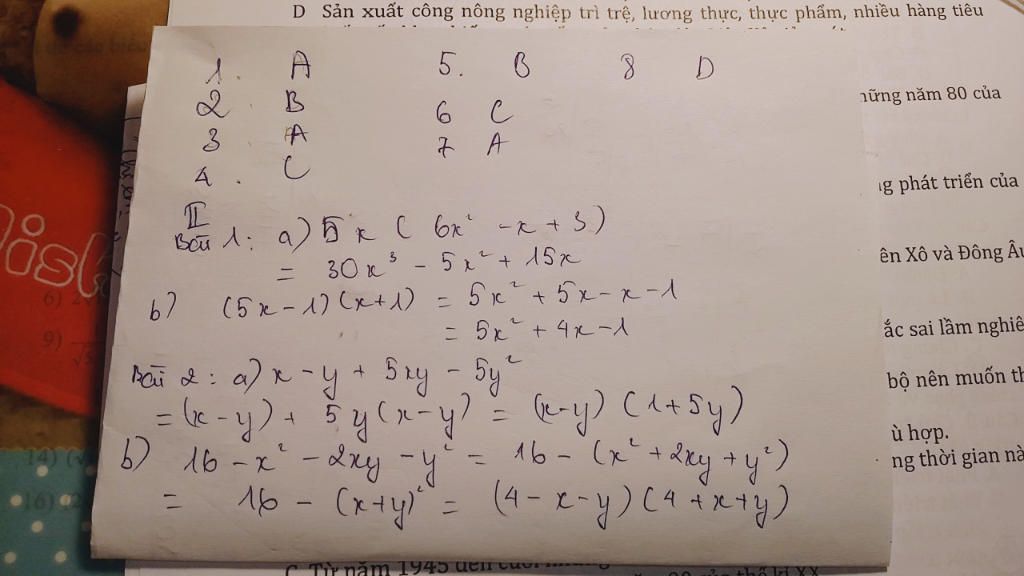 D Sản xuất công nông nghiệp trì trệ, lương thực, thực phẩm, nhiều hàng tiêu
1. A 5. B 8 D
2. B 6 C
3 A 7 A
4. C
II
Bài 1: a) 5x ( 6x² - x + 3)
= 30x³ - 5x² + 15x
b) (5x - 1)(x+1) = 5x² + 5x - x - 1
= 5x² + 4x - 1
Bài 2: a) x - y + 5xy - 5y²
= (x - y) + 5y(x - y) = (x-y) (1+5y)
b) 16 - x² - 2xy - y² = 16 - (x² + 2xy + y²)
= 16 - (x+y)² = (4 - x - y)(4 + x + y)
những năm 80 của
phát triển của
ên Xô và Đông Âu
ắc sai lầm nghiê
bộ nên muốn th
ù hợp.
ng thời gian nà
6)
9)
14)
16)
C Từ năm 1945 đến cuối những
của thế kỉ XX